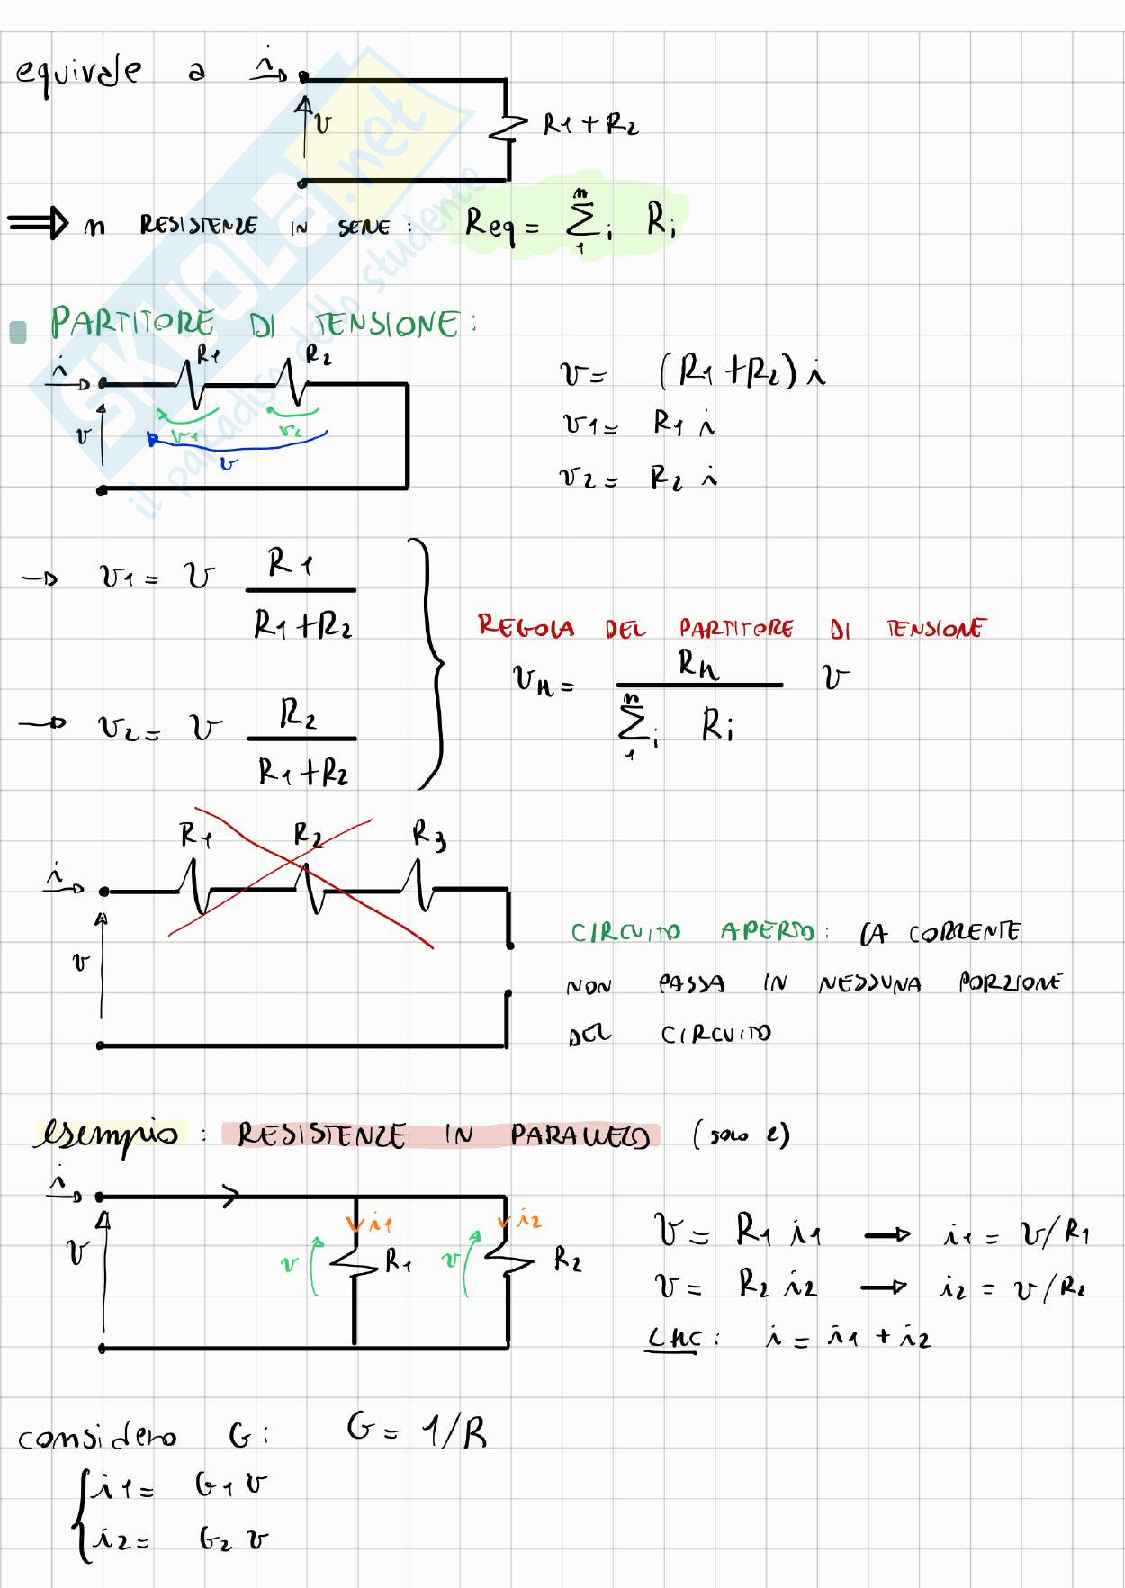 equivale a i
v R1+R2
⇒ n RESISTENZE IN SERIE: Req = Σ i Ri
n
1
PARTITORE DI TENSIONE:
i R1 R2
v v1 v2
v
v = (R1+R2) i
v1 = R1 i
v2 = R2 i
→ v1 = v R1
R1+R2
→ v2 = v R2
R1+R2
REGOLA DEL PARTITORE DI TENSIONE
vk = Rk v
n
Σ i Ri
1
i R1 R2 R3
v
CIRCUITO APERTO: LA CORRENTE
NON PASSA IN NESSUNA PORZIONE
DEL CIRCUITO
esempio: RESISTENZE IN PARALLELO (solo 2)
i
v i1 i2
v R1 v R2
v = R1 i1 → i1 = v/R1
v = R2 i2 → i2 = v/R2
LKC: i = i1 + i2
considero G: G = 1/R
i1 = G1 v
i2 = G2 v
SKUOLA.net
il paradiso dello studente